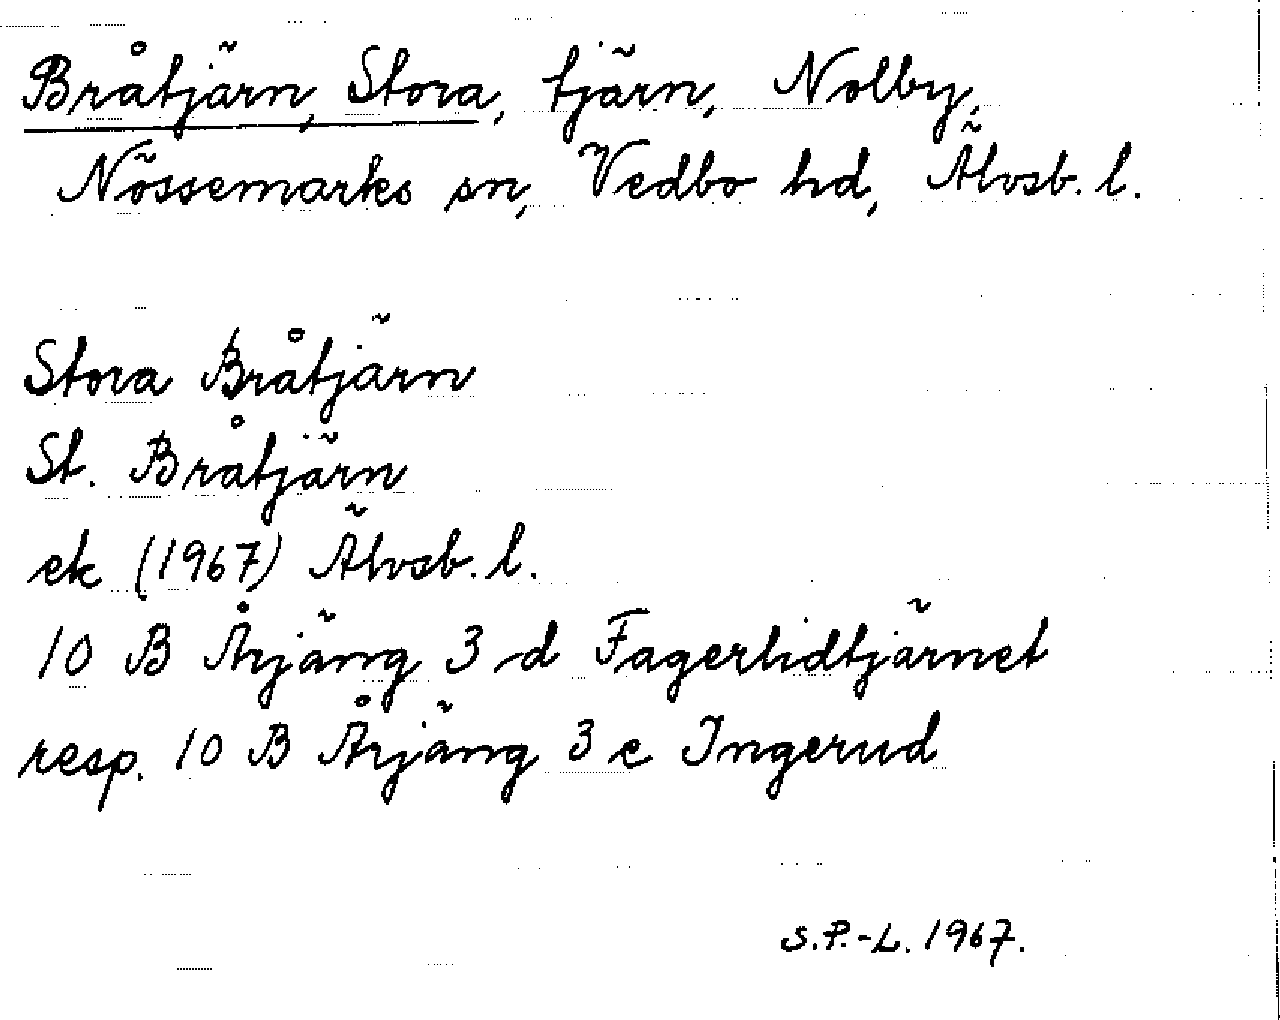 Bråtjärn, Stora, tjärn, Nolby,
Nössemarks sn, Vedbo hd, Älvsb. l.
Stora Bråtjärn
St. Bråtjärn
ek (1967) Älvsb. l.
10 B Årjäng 3 d Fagerlidtjärnet
resp. 10 B Årjäng 3 e Ingerud
S.P.-L. 1967.